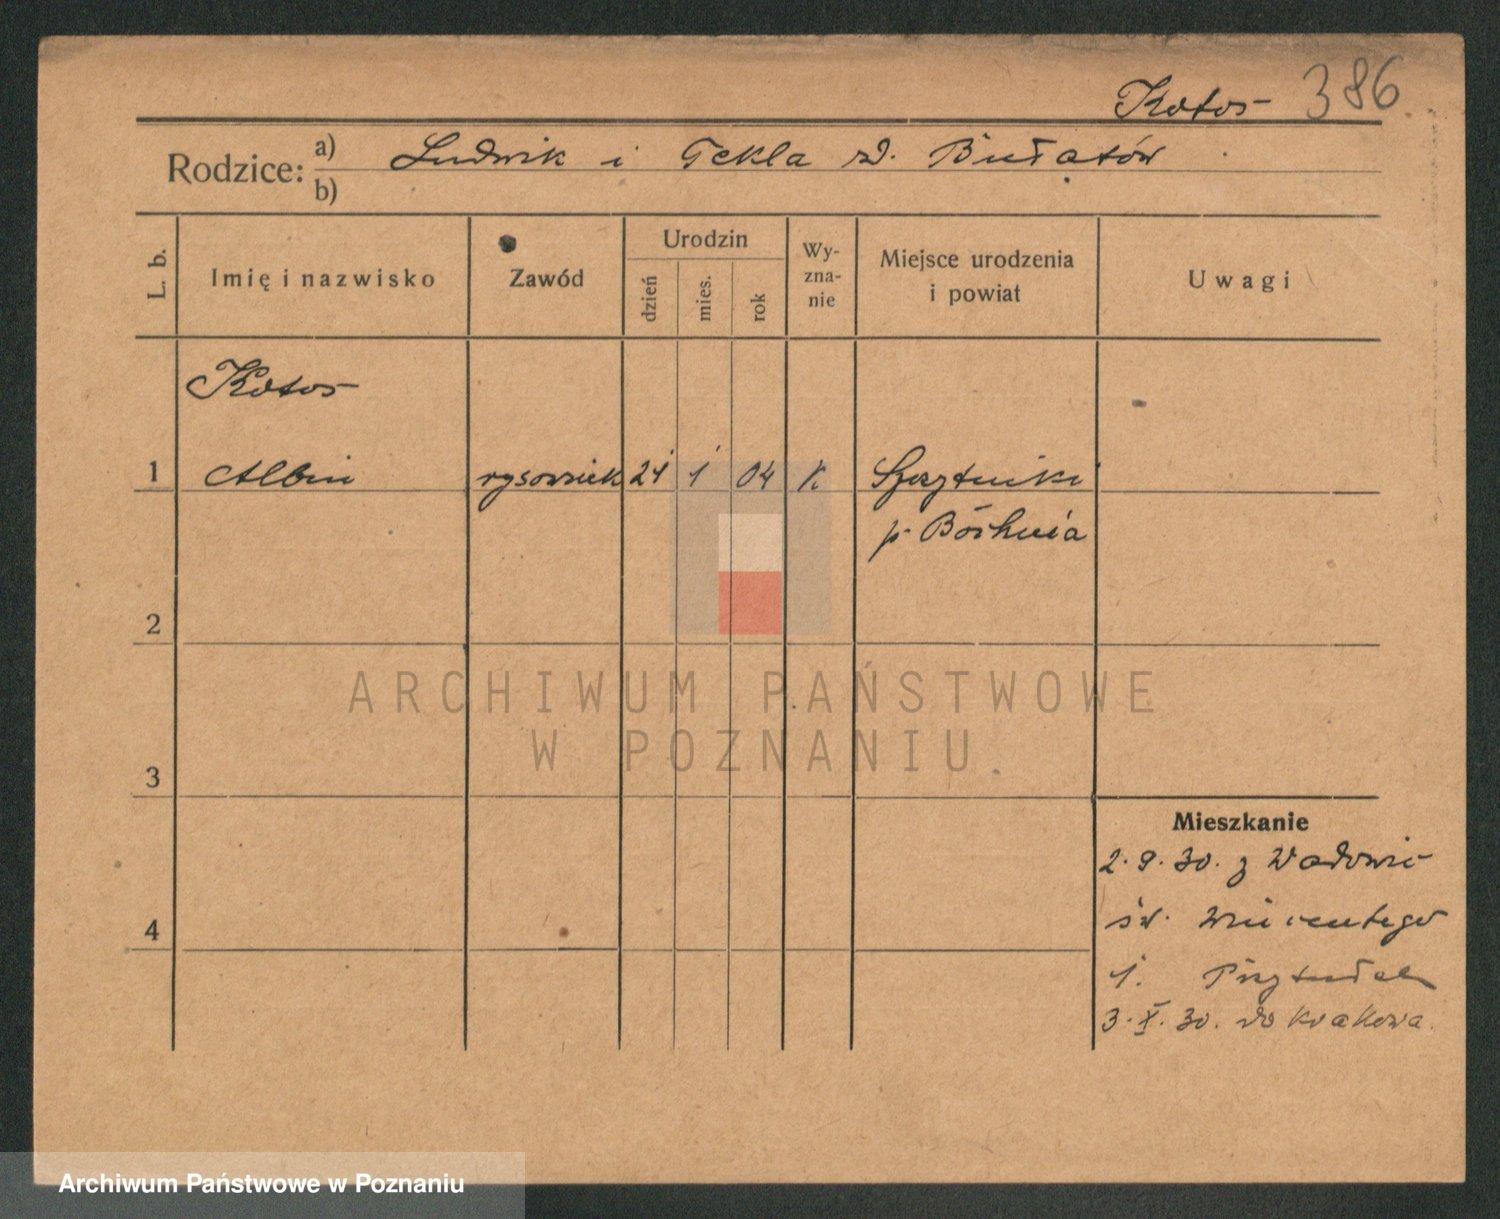 Kotos 386
Rodzice: a) Ludwik i Tekla z d. Bułatów
b)
L. b. Imię i nazwisko Zawód Urodzin dzień mies. rok Wy-zna-nie Miejsce urodzenia i powiat Uwagi
Kotos
1 Albin rysownik 21 1 04 K
p. Bochnia
2
ARCHIWUM PAŃSTWOWE
W POZNANIU
3
Mieszkanie
2.9.30. z Wadowic
4 św. Wincentego
1.
3.X.30. do Krakowa.
Archiwum Państwowe w Poznaniu